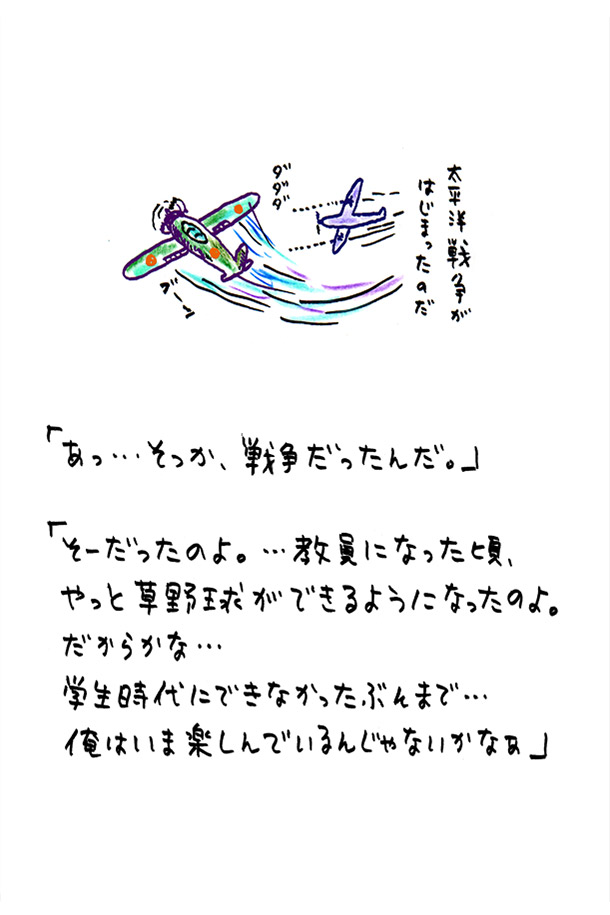 太平洋戦争が
はじまったのだ
ダダダ
ブーン
「あっ…そっか、戦争だったんだ。」
「そーだったのよ。…教員になった頃、
やっと草野球ができるようになったのよ。
だからかな…
学生時代にできなかったぶんまで…
俺はいま楽しんでいるんじゃないかなぁ」